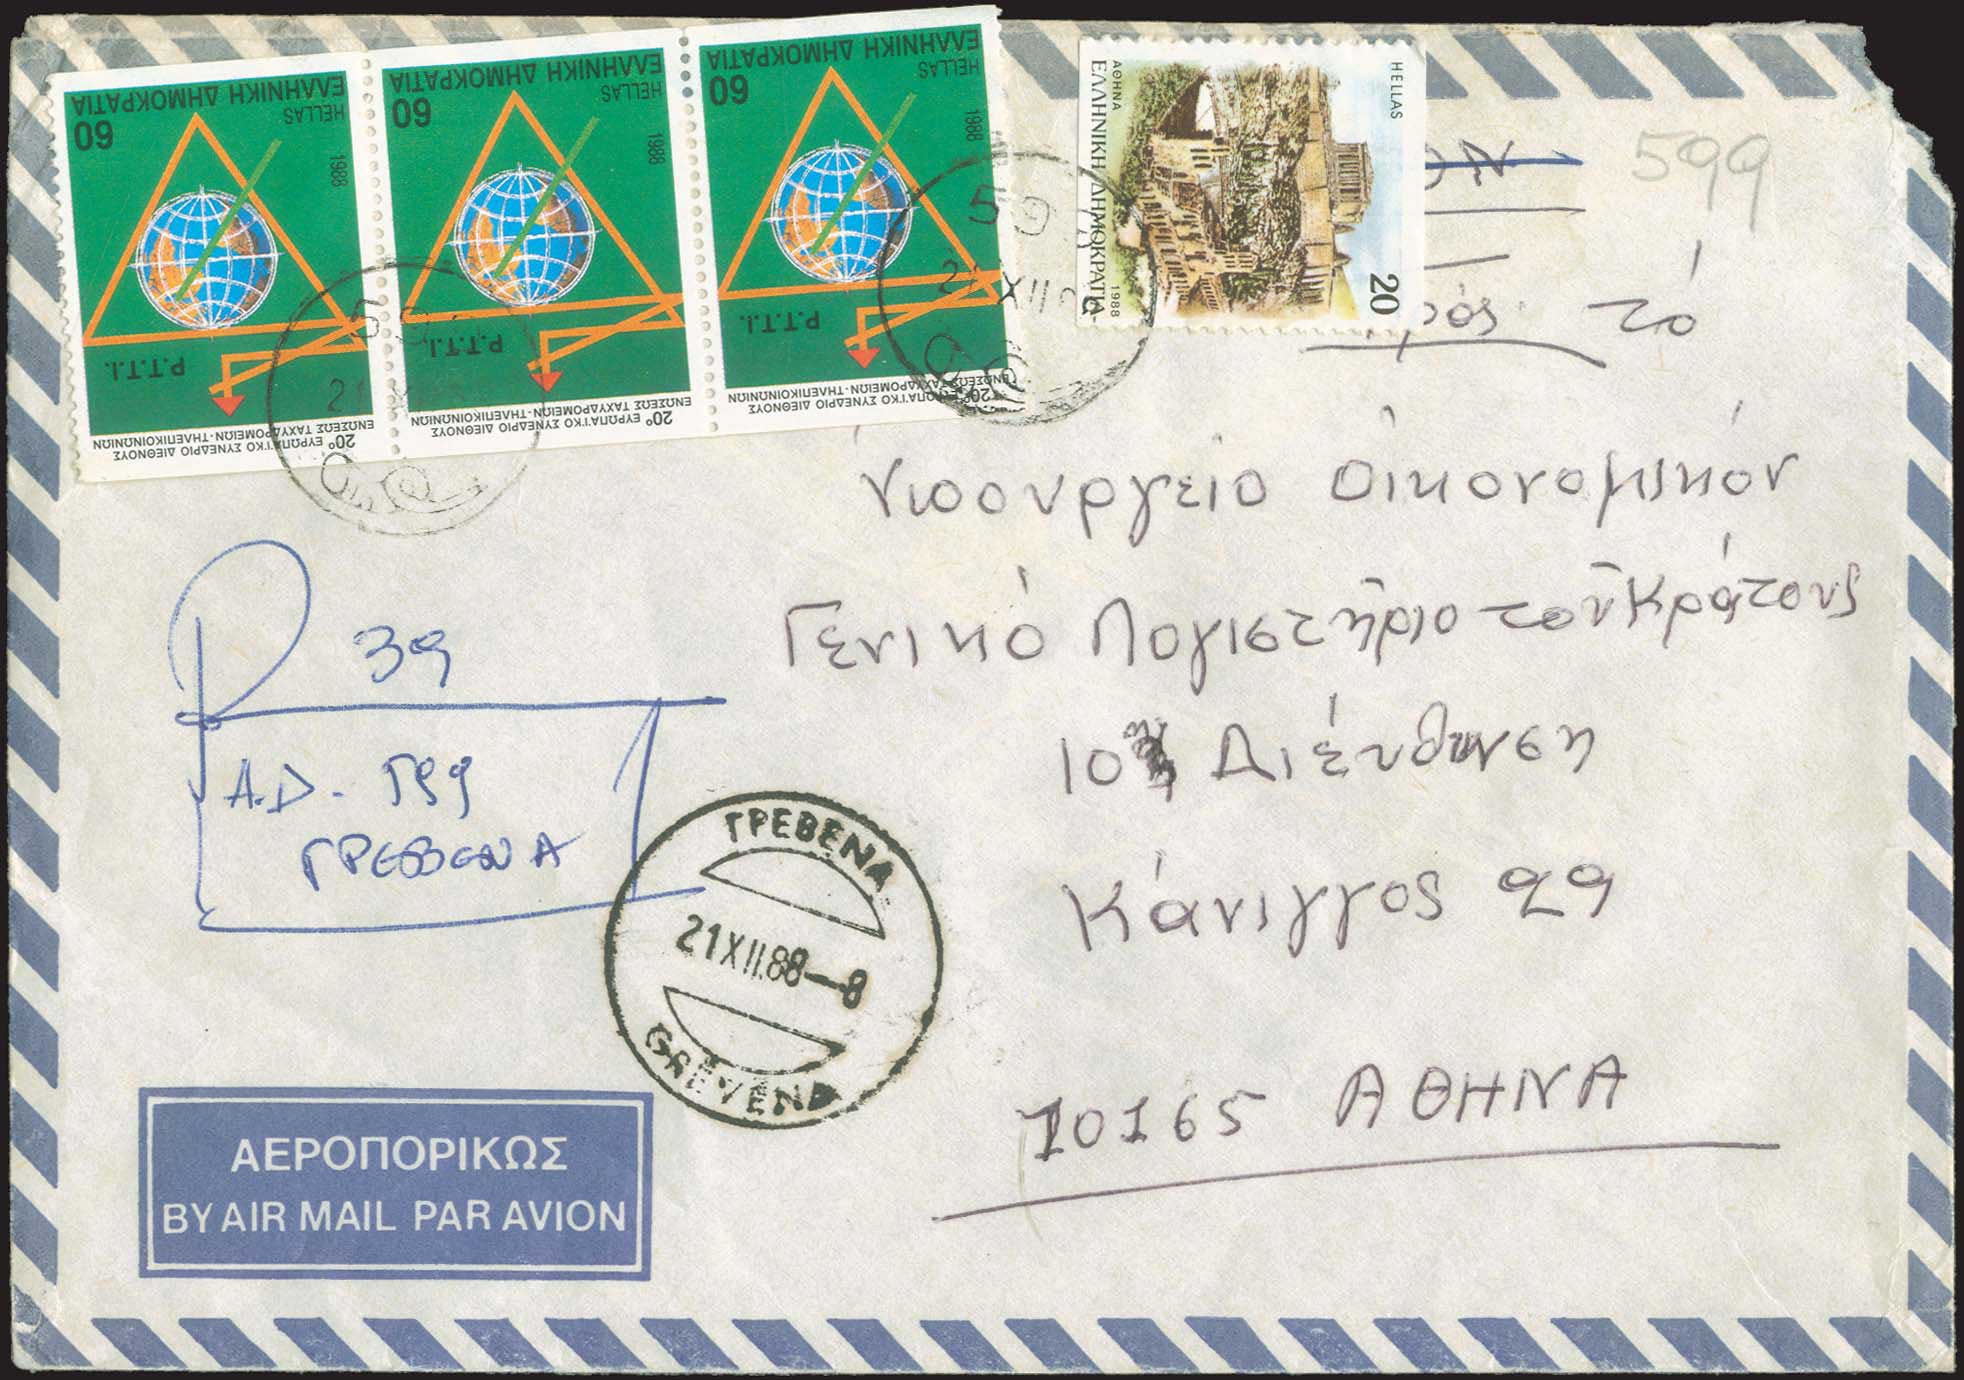 ΕΛΛΗΝΙΚΗ ΔΗΜΟΚΡΑΤΙΑ
HELLAS
60
1988
P.T.T.I.
20º ΕΥΡΩΠΑΪΚΟ ΣΥΝΕΔΡΙΟ ΔΙΕΘΝΟΥΣ
ΕΝΩΣΕΩΣ ΤΑΧΥΔΡΟΜΕΙΩΝ-ΤΗΛΕΠΙΚΟΙΝΩΝΙΩΝ
ΕΛΛΗΝΙΚΗ ΔΗΜΟΚΡΑΤΙΑ
HELLAS
60
1988
P.T.T.I.
20º ΕΥΡΩΠΑΪΚΟ ΣΥΝΕΔΡΙΟ ΔΙΕΘΝΟΥΣ
ΕΝΩΣΕΩΣ ΤΑΧΥΔΡΟΜΕΙΩΝ-ΤΗΛΕΠΙΚΟΙΝΩΝΙΩΝ
ΕΛΛΗΝΙΚΗ ΔΗΜΟΚΡΑΤΙΑ
HELLAS
60
1988
P.T.T.I.
20º ΕΥΡΩΠΑΪΚΟ ΣΥΝΕΔΡΙΟ ΔΙΕΘΝΟΥΣ
ΕΝΩΣΕΩΣ ΤΑΧΥΔΡΟΜΕΙΩΝ-ΤΗΛΕΠΙΚΟΙΝΩΝΙΩΝ
HELLAS
20
ΑΘΗΝΑ 1988
ΕΛΛΗΝΙΚΗ ΔΗΜΟΚΡΑΤΙΑ
599
τό
Υπουργείο Οικονομικόν
Γενικό Λογιστήριο τοῦ Κράτους
10η Διέυθυνση
Κάνιγγος 29
10165 ΑΘΗΝΑ
R 39
Α.Δ. 599
ΓΡΕΒΕΝΑ
ΓΡΕΒΕΝΑ
21 XII.88-8
GREVENA
ΑΕΡΟΠΟΡΙΚΩΣ
BY AIR MAIL PAR AVION